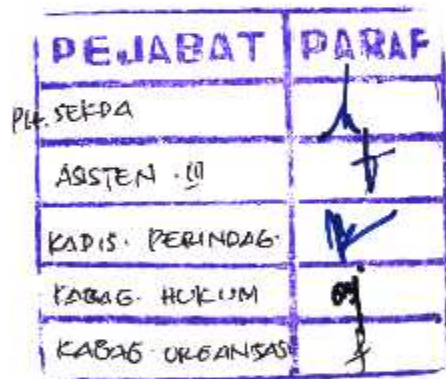 PEJABAT PARAF
PLH. SEKDA
ASISTEN . III
KADIS . PERINDAG.
KABAG. HUKUM
KABAG ORGANISASI